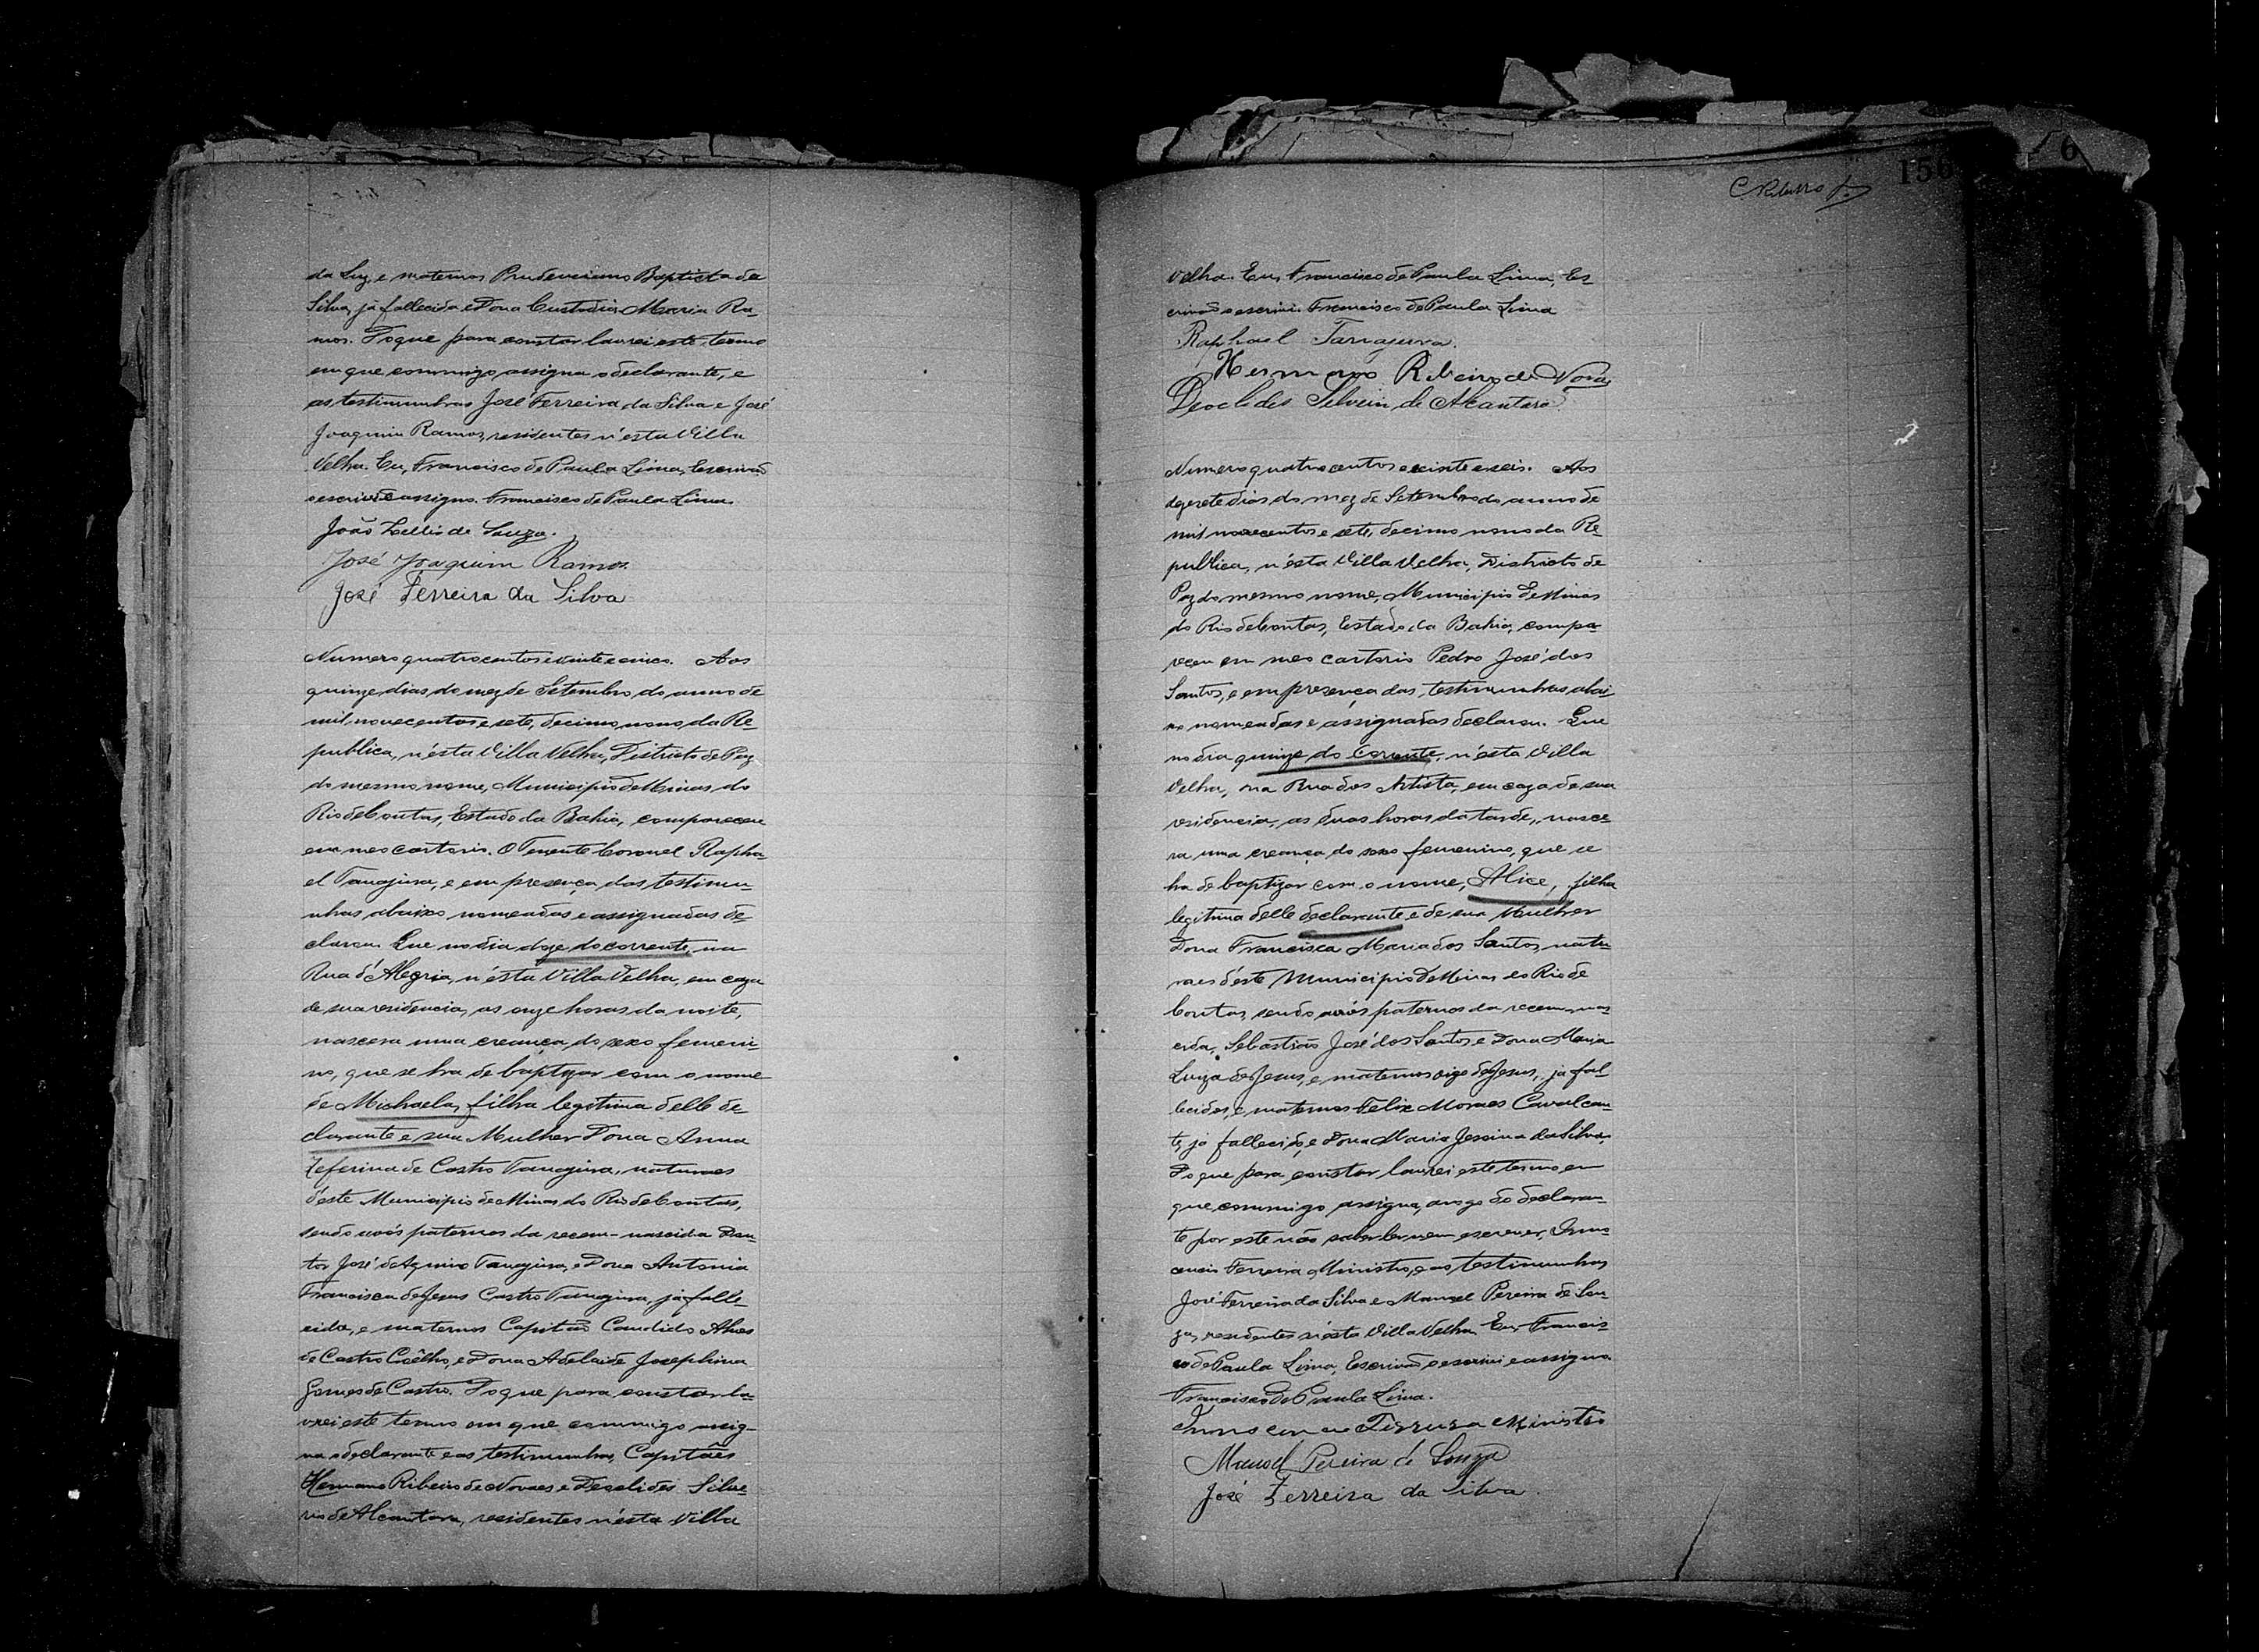 da Luz, e maternos Prudenciano Baptista da
Silva, já fallecida e Dona Custodia Maria Ra-
mos. Do que para constar lavrei este termo
em que commigo assigna o declarante, e
as testimunhas José Ferreira da Silva e José
Joaquim Ramos, residentes n'esta Villa
Velha. Eu, Francisco de Paula Lima, Escrivão
o escrivi e assigno. Francisco de Paula Lima.
João Lellis de Souza.
José Joaquim Ramos.
José Ferreira da Silva
Numero quatrocentos e vinte e cinco. Aos
quinze dias do mez de Setembro do anno de
mil novecentos e sete, decimo nono da Re-
publica, n'ésta Villa Velha, Districto de Paz
do mesmo nome, Municipio de Minas do
Rio de Contas, Estado da Bahia, compareceu
em meo cartorio. O Tenente Coronel Rapha-
el Tanajura, e em presença das testimu-
nhas abaixo nomeadas e assignadas de-
clarou. Que no dia doze do corrente, na
Rua d'Alegria, n'ésta Villa Velha, em caza
de sua residencia, as onze horas da noite,
nascera uma creança do sexo femeni-
no, que se ha de baptizar com o nome
de Michaela, filha legitima delle de-
clarante e sua Mulher Dona Anna
Zeferina de Castro Tanajura, naturaes
d'este Municipio de Minas do Rio de Contas,
sendo avós paternos da recem-nascida Dou-
tor José de Aquino Tanajura, e Dona Antonia
Francisca de Jesus Castro Tanajura, já falle-
cida, e maternos Capitão Candido Alves
de Castro Coêlho, e Dona Adelaide Josephina
Gomes de Castro. Do que para constar la-
vrei este termo em que commigo assig-
na o declarante e as testimunhas, Capitães
Hermano Ribeiro de Novaes e Deoclides Silve-
rio de Alcantara, residentes n'ésta Villa
C Ribeiro
156
6
Velha. Eu, Francisco de Paula Lima, Es-
crivão o escrivi. Francisco de Paula Lima
Raphael Tanajura.
Hermano Ribeiro de Novaes
Deoclides Silverio de Alcantara
Numero quatrocentos e vinte e seis. Aos
dezesete dias do mez de Setembro do anno de
mil novecentos e sete, decimo nono da Re-
publica, n'ésta Villa Velha, Districto de
Paz do mesmo nome, Municipio de Minas
do Rio de Contas, Estado da Bahia, compa-
receu em meo cartorio Pedro José dos
Santos, e em presença das testimunhas abai-
xo nomeadas e assignadas declarou. Que
no dia quinze do Corrente, n'ésta Villa
Velha, na Rua dos Artista, em caza de sua
residencia, as duas horas da tarde, nasce-
ra uma creança do sexo femenino, que se
ha de baptizar com o nome, Alice, filha
legitima delle declarante e de sua Mulher
Dona Francisca Maria dos Santos, natu-
raes d'éste Municipio de Minas do Rio de
Contas, sendo avós paternos da recem-nas-
cida, Sebastião José dos Santos e Dona Maria
Luiza de Jesus, e maternos digo de Jesus, já fal-
lecidos, e maternos Felix Moraes Cavalcan-
te, já fallecido, e Dona Maria Jesuina da Silva.
Do que para constar lavrei este termo em
que commigo assigna, a rogo do declaran-
te por este não saber ler nem escrever, Inno-
cencio Ferreira Ministro, e as testimunhas
José Ferreira da Silva e Manoel Pereira de Sou-
za, residentes n'ésta Villa Velha. Eu, Francis-
co de Paula Lima, Escrivão o escrivi e assigno.
Francisco de Paula Lima.
Innocencio Ferreira Ministro
Manoel Pereira de Souza
José Ferreira da Silva.